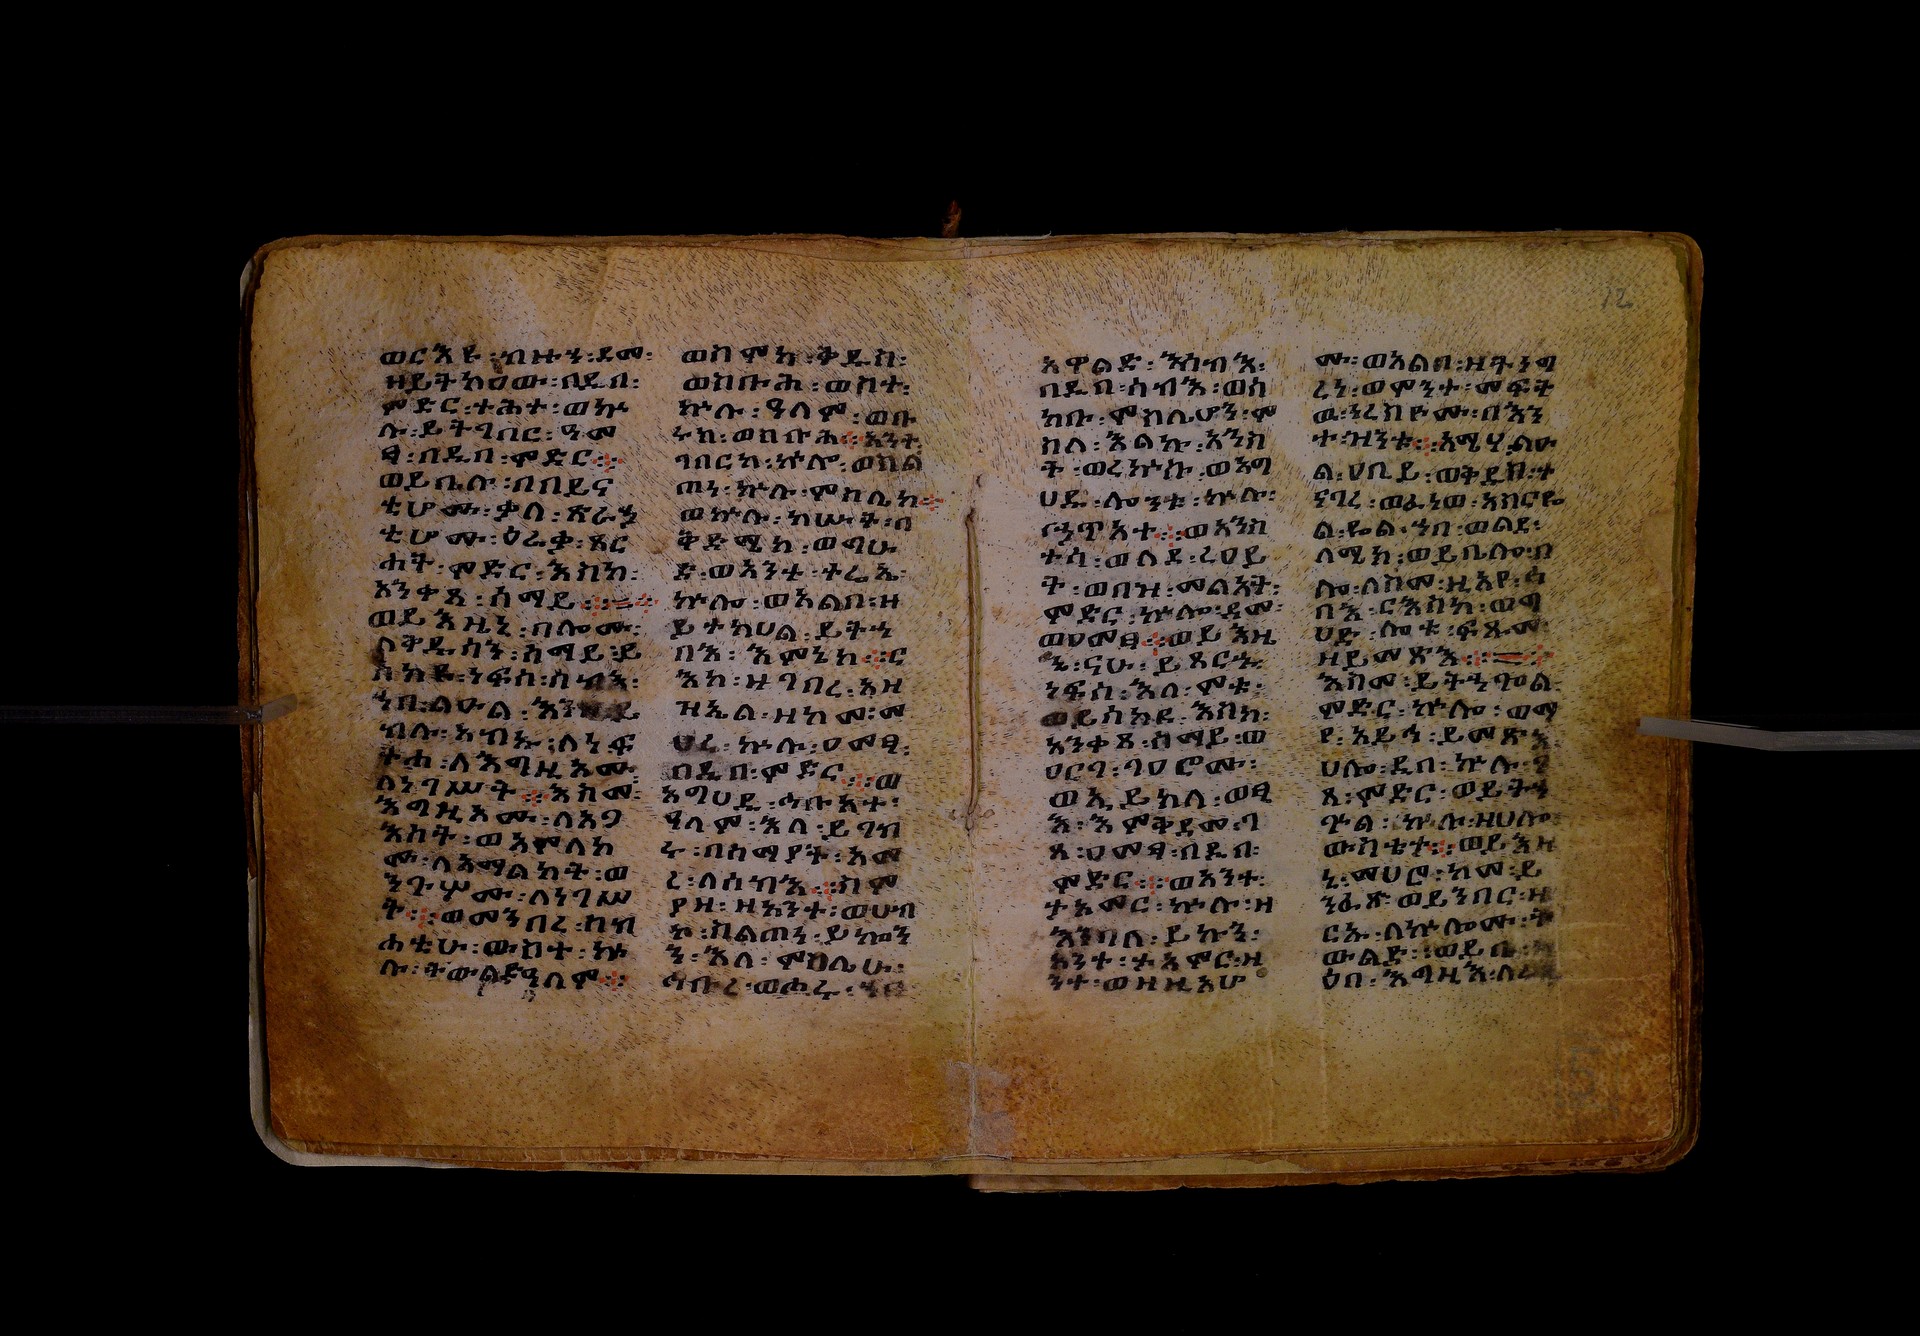 ወርእዩ፡ብዙኅ፡ደመ፡
ዘይትከዐው፡በዲበ፡
ምድር፡ተሕተ፡ወኵ
ሉ፡ይትገበር፡ዓመ
ፃ፡በዲበ፡ምድር።
ወይቤሉ፡በበይና
ቲሆሙ፡ቃለ፡ጽራኃ
ቲሆሙ፡ዕራቃ፡ጸር
ሐት፡ምድር፡እስከ፡
አንቀጸ፡ሰማይ።
ወይእዜኒ፡በሎሙ፡
ለቅዱሳን፡ሰማይ፡ይ
ሰክዩ፡ነፍሰ፡ሰብእ፡
ኀበ፡ልዑል፡እንዘ፡ይ
ብሉ፡አብኡ፡ለነ፡ፍ
ትሐ፡ለእግዚአሙ
ለነገሥት።እስመ፡
እግዚአሙ፡ለአጋ
እስት፡ወአምላከ
ሙ፡ለአማልክት፡ወ
ንጉሦሙ፡ለነገሥ
ት።ወመንበረ፡ስብ
ሐቲሁ፡ውስተ፡ኵ
ሉ፡ትውልድ፡ዓለም።
ወስምከ፡ቅዱስ፡
ወስቡሕ፡ውስተ፡
ኵሉ፡ዓለም፡ወቡ
ሩክ፡ወስቡሕ።አንተ
ገበርከ፡ኵሎ፡ወስል
ጠነ፡ኵሉ፡ምስሌከ።
ወኵሉ፡ክሡት፡በ
ቅድሜከ፡ወግሁ
ድ፡ወአንተ፡ትሬኢ፡
ኵሎ፡ወአልቦ፡ዘ
ይትከሀል፡ይትኃ
በእ፡እምኔከ።ር
እከ፡ዘገብረ፡አዘ
ዝኤል፡ዘከመ፡መ
ሀረ፡ኵሉ፡ዐመፃ፡
በዲበ፡ምድር።ወ
አግሀደ፡ኅቡአተ፡
ዓለም፡እለ፡ይገብ
ሩ፡በሰማያት፡አመ
ረ፡ለሰብእ።ስም
ያዘ፡ዘአንተ፡ወሀብ
ኮ፡ስልጠነ፡ይኰን
ን፡እለ፡ምስሌሁ፡
ኅቡረ፡ወሐሩ፡ኀበ
አዋልድ፡እሰብእ፡
በዲበ፡ሰብእ፡ወሰ
ከቡ፡ምስሌሆን፡ም
ስለ፡እልኩ፡አንስ
ት፡ወረኵሱ፡ወአግ
ሀዱ፡ሎንቱ፡ኵሉ፡
ኃጥአተ።ወአንስ
ተሰ፡ወለዳ፡ረዐይ
ት፡ወበዝ፡መልአት፡
ምድር፡ኵሎ፡ደመ፡
ወዐመፃ።ወይእዜ
ኒ፡ናሁ፡ይጸርኁ፡
ነፍሰ፡እለ፡ሞቱ፡
ወይሰክዩ፡እስከ፡
አንቀጸ፡ሰማይ፡ወ
ዐርገ፡ገዐሮሙ፡
ወኢይክለ፡ወፂ
አ፡እምቅድመ፡ገ
ጸ፡ዐመፃ፡በዲበ፡
ምድር።ወአንተ፡
ተአምር፡ኵሉ፡ዘ
እንበለ፡ይኩን፡
አንተ፡ታአምር፡ዘ
ንተ፡ወዘዚአሆ
ሙ፡ወአልቦ፡ዘትነግ
ረነ፡ወምንተ፡መፍት
ዉ፡ንረስዮሙ፡በእን
ተ፡ዝንቱ።አሜሃ፡ልዑ
ል፡ዐቢይ፡ወቅዱስ፡ተ
ናገረ፡ወፈነወ፡አስርየ
ል፡ዬል፡ኀበ፡ወልደ፡
ላሜክ፡ወይቤሎ፡በ
ሎ፡ለስመ፡ዚአየ፡ኅ
በእ፡ርእስከ፡ወግ
ሀድ፡ሎቱ፡ፍጻሜ፡
ዘይመጽእ።
እስመ፡ይትኃጐል፡
ምድር፡ኵሎ፡ወማ
የ፡አይኅ፡ይመጽእ፡
ሀሎ፡ዲበ፡ኵሉ፡ገ
ጸ፡ምድር፡ወይትኃ
ጐል፡ኵሉ፡ዘሀሎ፡
ውስቴታ።ወይእዜ
ኒ፡መሀሮ፡ከመ፡ይ
ንፈጽ፡ወይንበር፡ዘ
ርኡ፡ለኵሎሙ፡ት
ውልድ።ወይቤ፡
ዕበ፡እግዚእ፡ለሩ